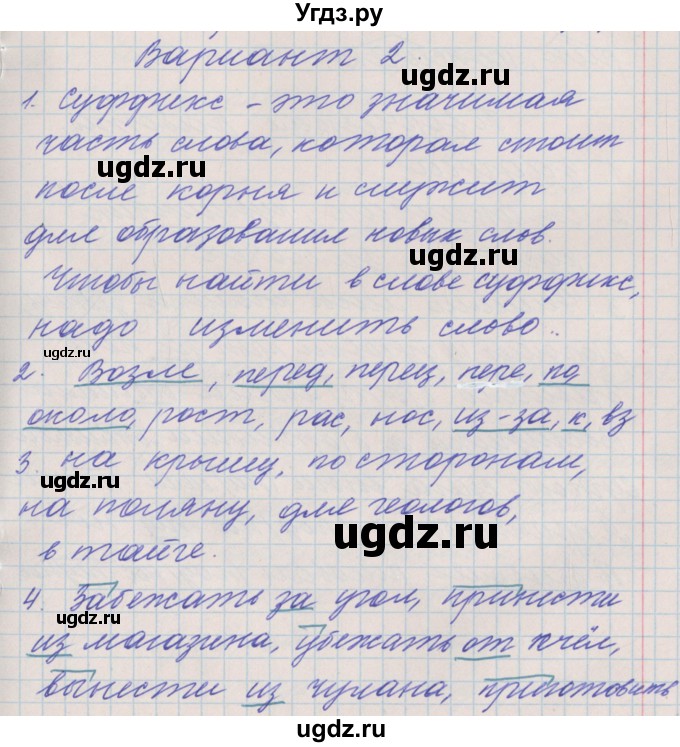 Угдз.ру
Вариант 2.
1. Суффикс – это значимая
часть слова, которая стоит
после корня и служит
для образования новых слов.
Чтобы найти в слове суффикс,
надо изменить слово..
2. Возле, перед, перец, пере, по
около, рост, рас, нос, из-за, к, вз
3. на крышу, по сторонам,
на поляну, для геологов,
в тайге.
4. Забежать за угол, принести
из магазина, убежать от пчёл,
вынести из чулана, приготовить
ugdz.ru
ugdz.ru
ugdz.ru
ugdz.ru
ugdz.ru
ugdz.ru
ugdz.ru
ugdz.ru
ugdz.ru
ugdz.ru
ugdz.ru
ugdz.ru